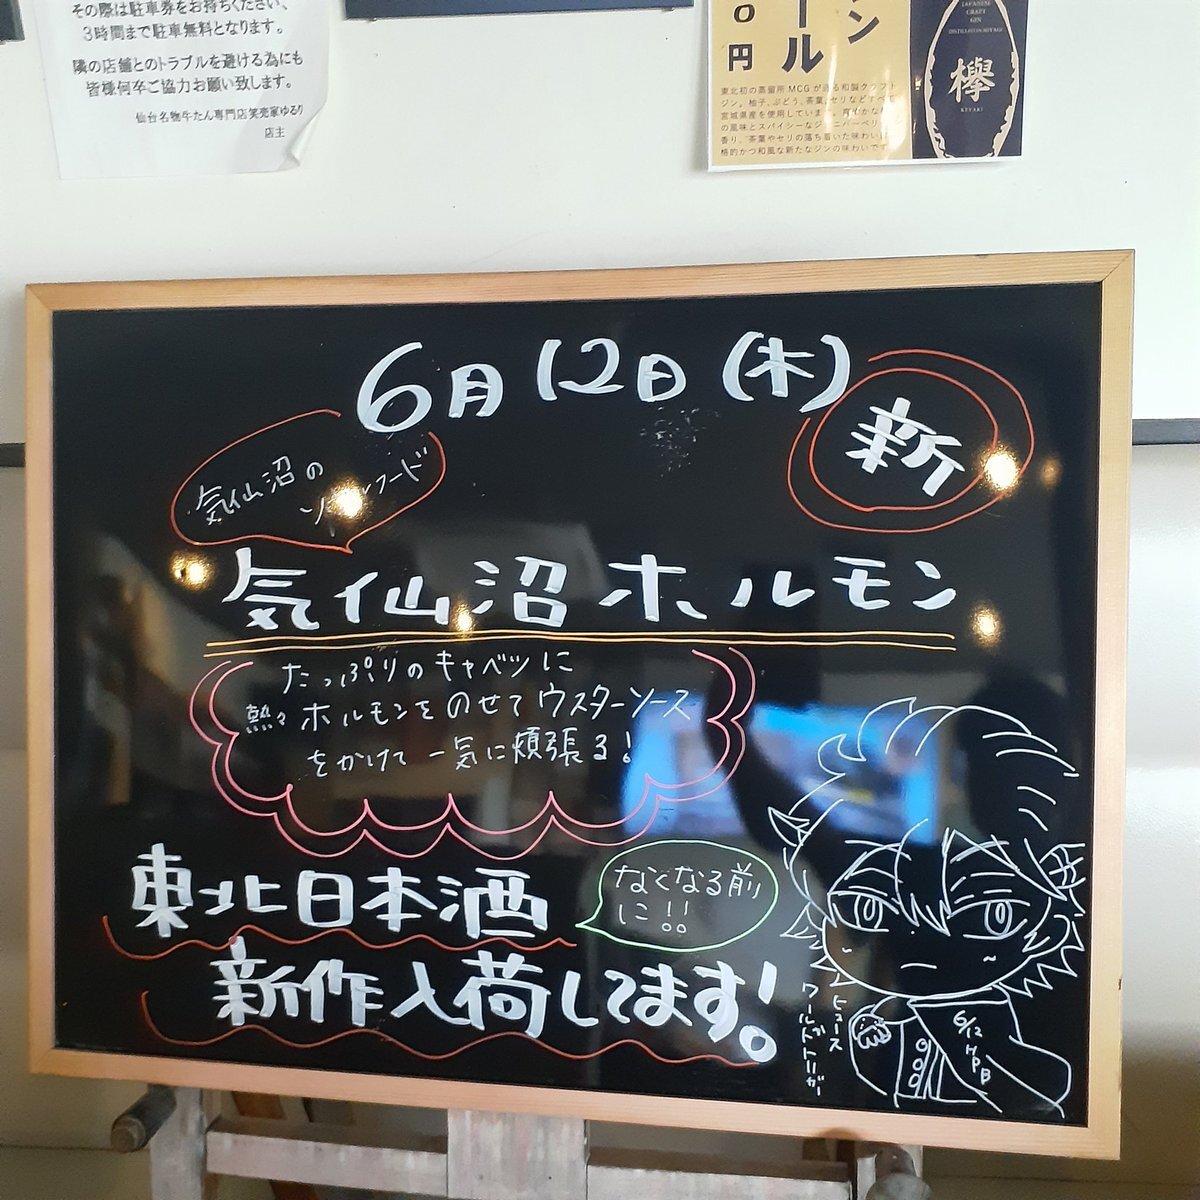 その際は駐車券をお持ちください、
3時間まで駐車無料となります。
隣の店舗とのトラブルを避ける為にも
皆様何卒ご協力お願い致します。
仙台名物牛たん専門店笑売家ゆるり
店主
ン
ール
0円
JAPANESE
CRAFT
GIN
DISTILLED IN MIYAGI
欅
KEYAKI
東北初の蒸留所MCGが造る和製クラフト
ジン。柚子、ぶどう、茶葉、セリなどすべて
宮城県産を使用しています。
の風味とスパイシーなジュニパーベリー
香り、茶葉やセリの落ち着いた味わい
格的かつ和風な新たなジンの味わいです
6月12日(木)
新
気仙沼の
ソウルフード
気仙沼ホルモン
たっぷりのキャベツに
熱々ホルモンをのせてウスターソース
をかけて一気に頬張る!
東北日本酒
なくなる前
に!!
新作入荷してます!。
ヒュース
ワールドトリガー
6/12
HPB